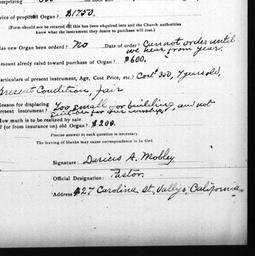 comprising
Price of proposed Organ? $1750.
(Form should not be returned till this has been inquired into and the Church authorities
know what the instrument they desire to purchase will cost)
new Organ been ordered? No Date of order? Cannot order until
we hear from you.
amount already raised toward purchase of Organ? $600.
Particulars of present instrument, Age, Cost Price, etc.? Cost 350, 7 years old,
Present Condition, fair
Reason for displacing present instrument? Too small for building and not
suitable for our worship.
How much is to be realized by sale
of (or from insurance on) old Organ? $200.
Precise answer to each question is necessary.
The leaving of blanks may cause correspondence and delay.
Signature: Darius A. Mobley
Official Designation: Pastor.
Address 827 Carolina St. Vallejo, California